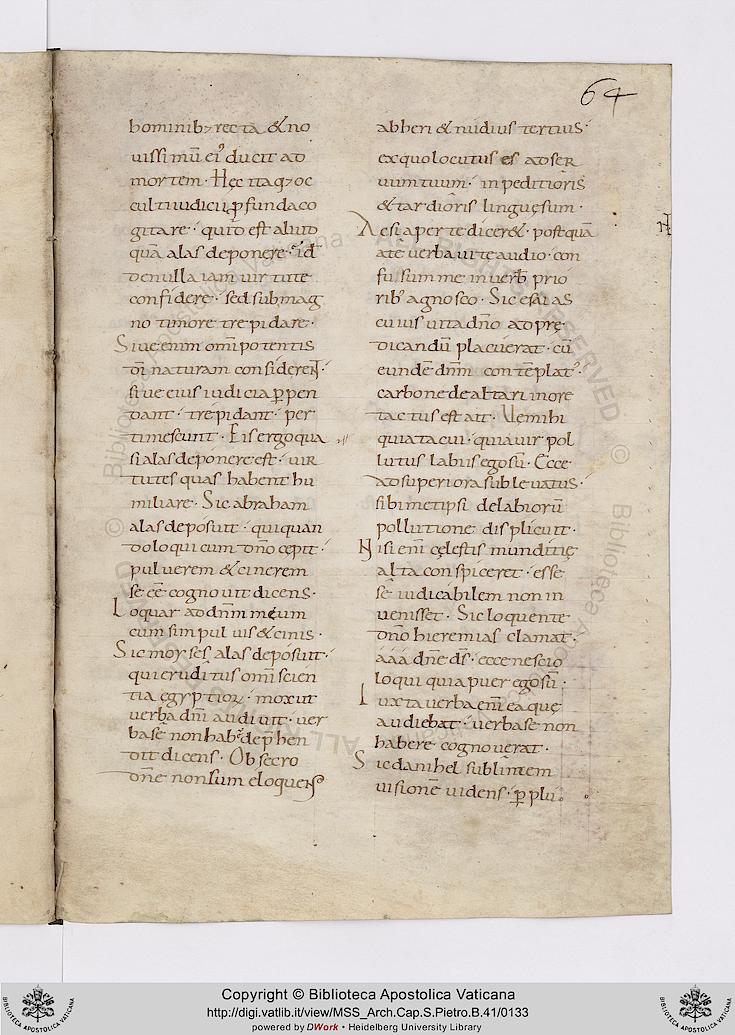 64
hominib; rectā & no
uissimū ei᾽ ducit ad
mortem · Hęc itaq; oc
culti iudicii ꝓfunda co
gitare · quid est aliud
quā alas deponere · id
de nulla iam uirtute
confidere · sed sub mag
no timore trepidare ·
Siue enim omīpotentis
dī naturam considerent ·
siue eius iudicia ꝑpen
dant · trepidant · per
timescunt · Eis ergo qua
si alas deponere est · uir
tutes quas habent hu
miliare · Sic abraham
alas deposuit · qui quan
do loqui cum dn̄o cepit ·
puluerem & cinerem
se ēē cognouit dicens ·
Loquar ad dn̄m meum
cum sim puluis & cinis ·
Sic moyses alas deposuit ·
qui eruditus omī scien
tia egyptior᷒ · mox ut
uerba dn̄i audiuit · uer
ba se non hab̄e dep̄hen
dit dicens · Obsecro
dn̄e non sum eloquens
ab heri & nudius tertius ·
ex quo locutus es ad ser
uum tuum · inpeditioris
& tardioris linguę sum ·
Ac si aperte dicer& · postquā
a te uerba uitę audio · con
fusum me in uerb̄ prio
rib᾽ agnosco · Sic esaias
cuius uita dn̄o ad prę
dicandū placuerat · cū
eundē dn̄m contēplat᾽
carbone de altari in ore
tactus est ait · Uę mihi
quia tacui · quia uir pol
lutus labiis ego sū · Ecce
ad superiora subleuatus ·
sibimetipsi de labiorū
pollutione displicuit ·
Nisi enī cęlestis munditię
alta conspiceret · esse
sē iudicabilem non in
uenisset · Sic loquente
dn̄o hieremias clamat ·
ááá dn̄e ds̄ · ecce nescio
loqui quia puer ego sū ·
Iuxta uerba enī ea quę
audiebat · uerba se non
habere cognouerat ·
Sic danihel sublimem
uisionē uidens · ꝑ plu
Copyright © Biblioteca Apostolica Vaticana
http://digi.vatlib.it/view/MSS_Arch.Cap.S.Pietro.B.41/0133
powered by DWork • Heidelberg University Library